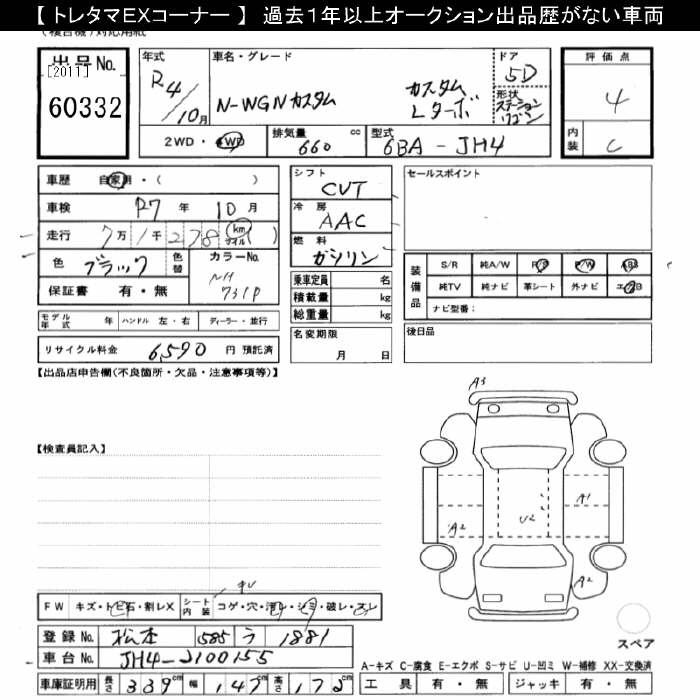 【 トレタマEXコーナー 】 過去1年以上オークション出品歴がない車両
出品No.
[2011]
60332
年式
R4/10月
車名・グレード
N-WGNカスタム
カスタム
Lターボ
ドア
5D
形状
ステーション
ワゴン
評価点
4
内装
C
2WD・4WD
排気量 660 cc
型式 6BA-JH4
車歴 自家用・( )
車検 R7 年 10 月
走行 7万1千278 km マイル ( )
色 ブラック 色替
カラーNo.
NH
731P
保証書 有・無
シフト
CVT
冷房
AAC
燃料
ガソリン
乗車定員 名
積載量 kg
総重量 kg
セールスポイント
装備品
S/R 純A/W P/S P/W ABS
純TV 純ナビ 革シート 外ナビ エアB
ナビ型番:
モデル年式 年 ハンドル 左・右 ディーラー・並行
リサイクル料金 6,590 円 預託済
名変期限
月 日
後日品
【出品店申告欄(不良箇所・欠品・注意事項等)】
【検査員記入】
A3
A1
A2
U2
A2
FW キズ・トビ石・割レX
シート内装 コゲ・穴・汚レ・シミ・破レ・スレ
登録No. 松本 585 う 1881
車台No. JH4-2100155
車庫証明用 長さ 339cm 幅 147cm 高さ 172cm
スペア
A-キズ C-腐食 E-エクボ S-サビ U-凹ミ W-補修 XX-交換済
工具 有・無 ジャッキ 有・無